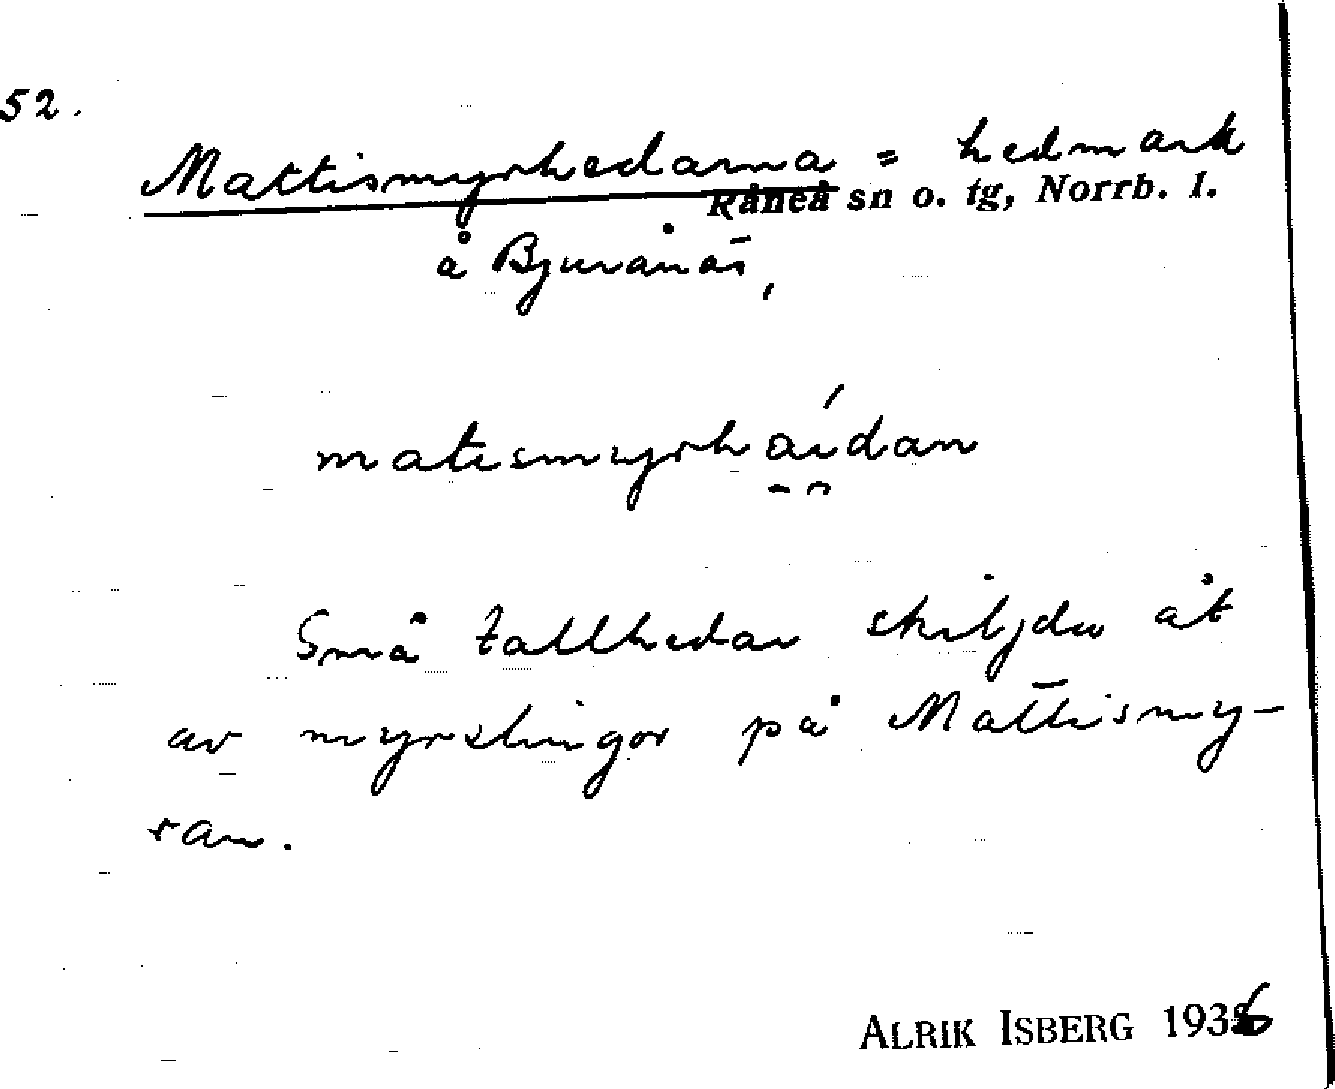 52.
Mattismyrhedarna = hedmark
Råneå sn o. tg, Norrb. l.
å Bjurånäs,
matismyrháidan
Små tallhedar skiljda åt
av myrslingor på Mattismy-
ran.
ALRIK ISBERG 1936